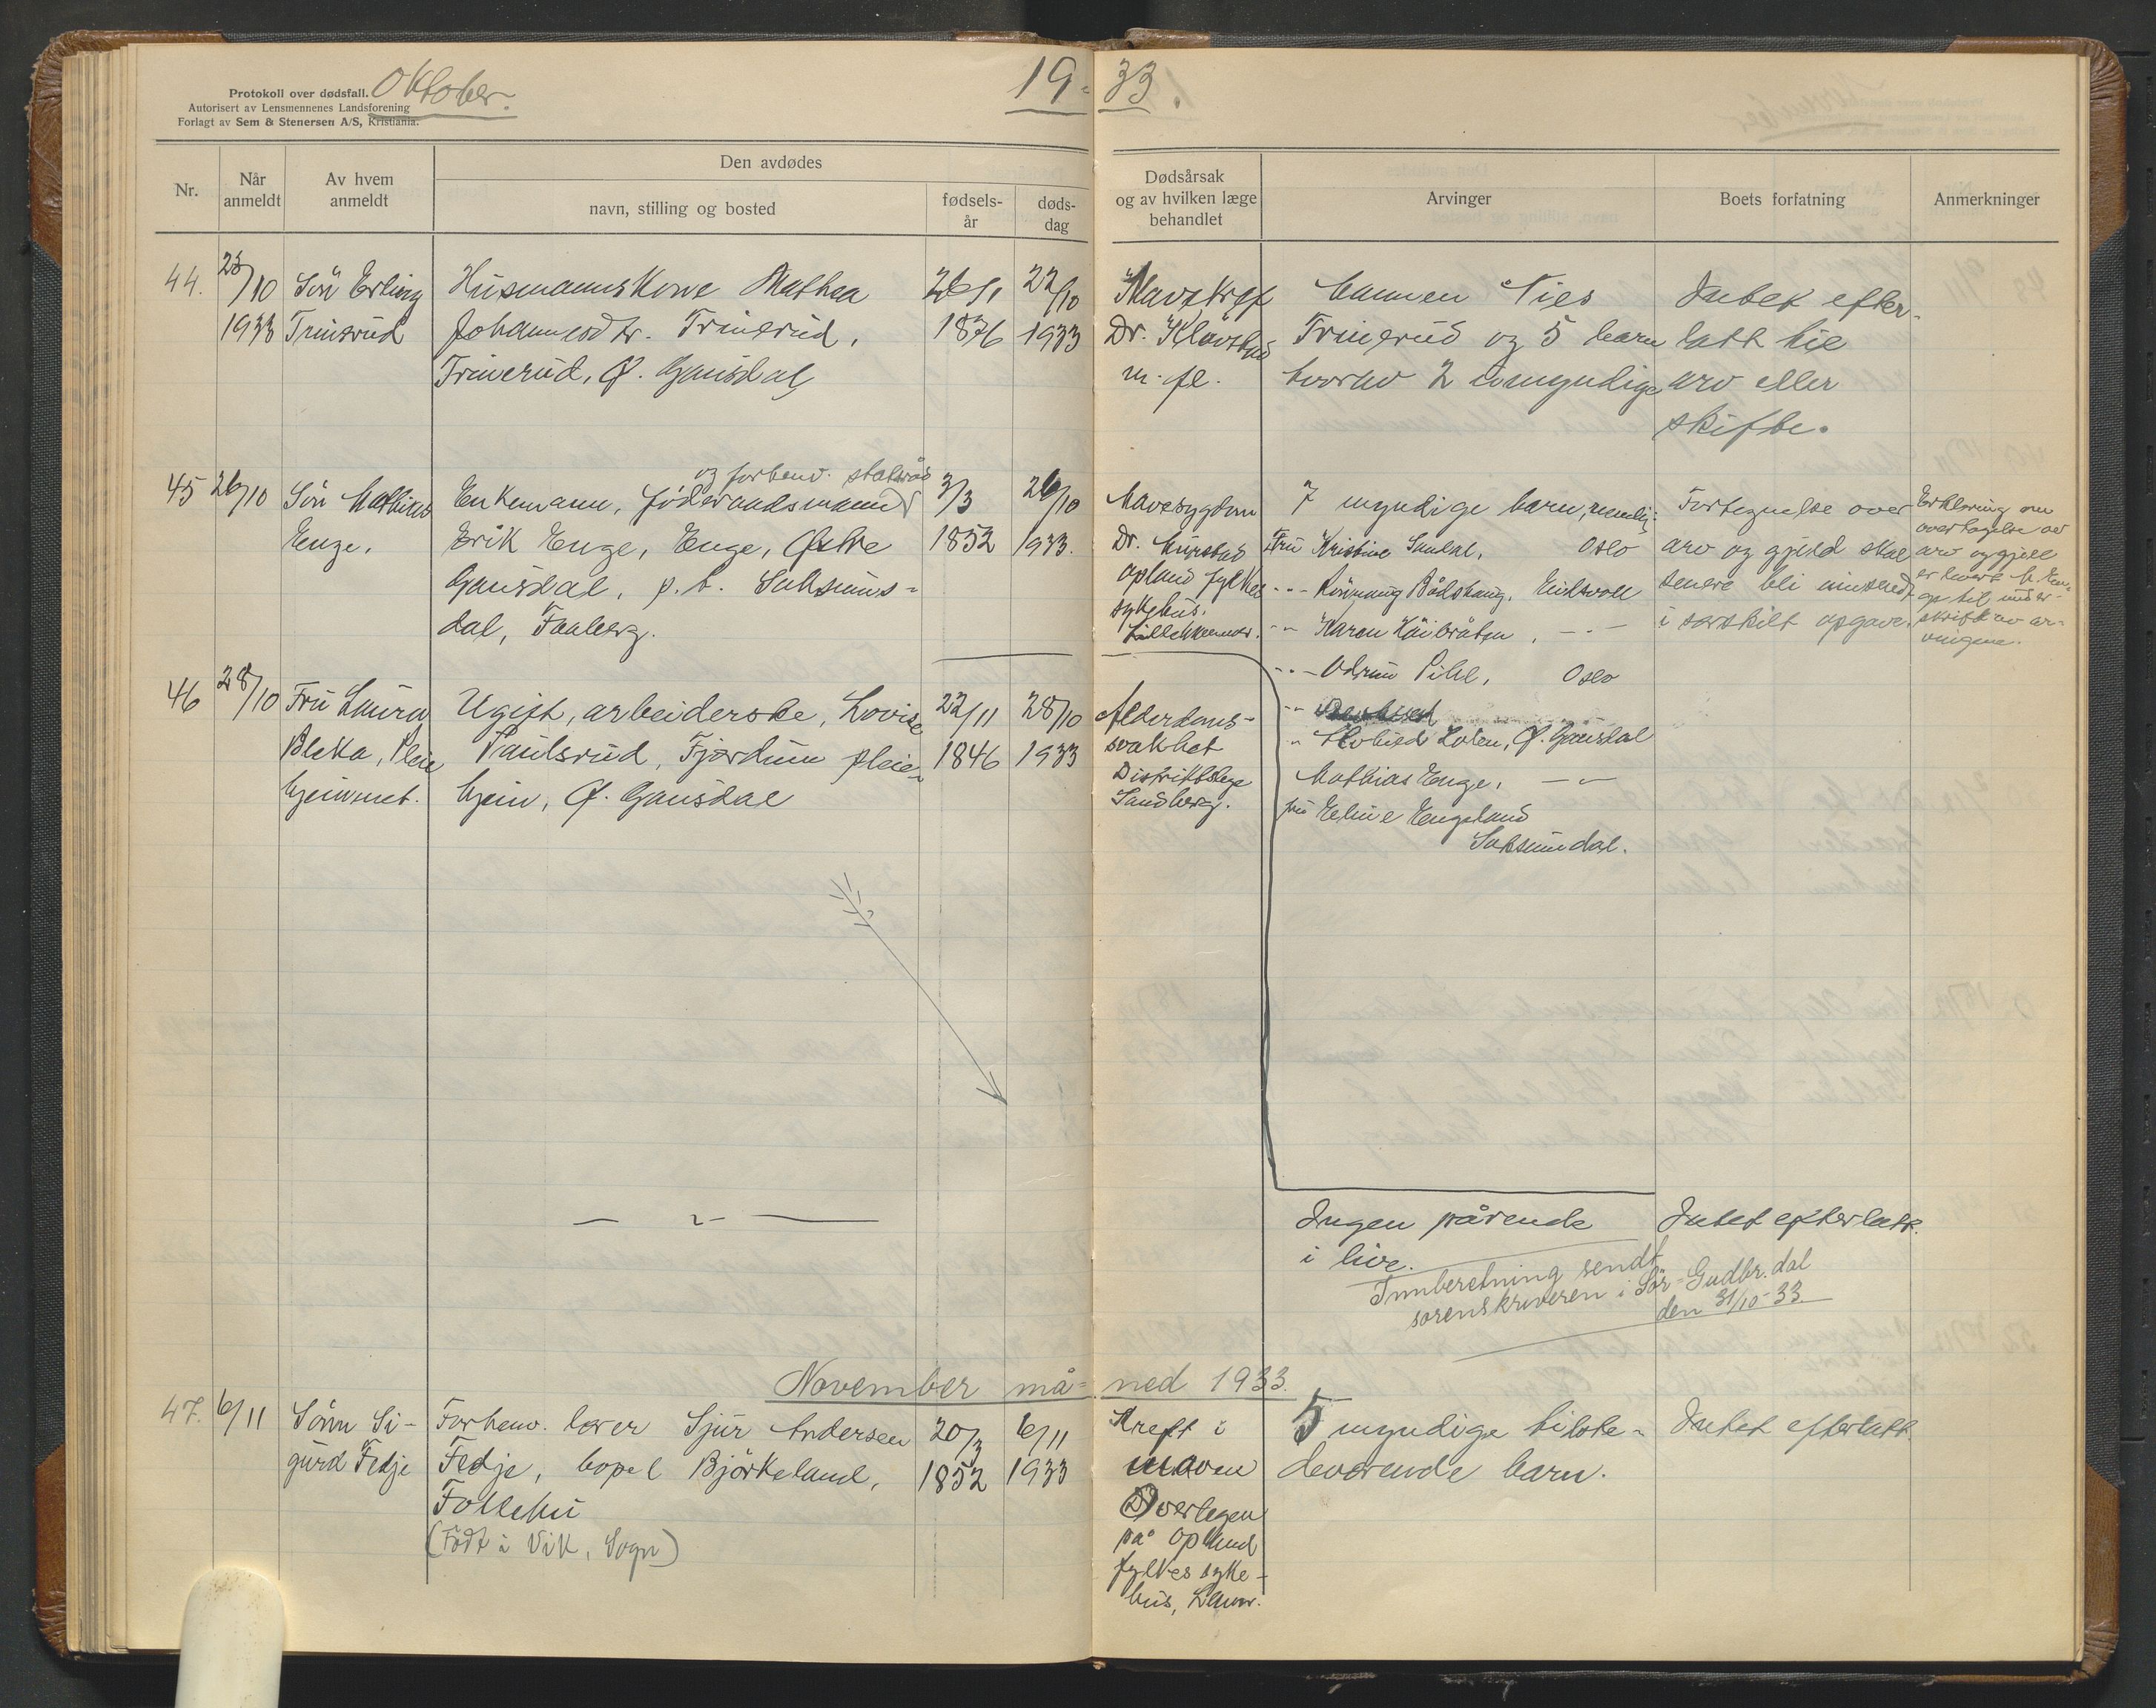 Protokoll over dødsfall. Oktober.
Autorisert av Lensmennenes Landsforening
Forlagt av Sem & Stenersen A/S, Kristiania.
19-33
Nr.
Når anmeldt
Av hvem anmeldt
Den avdødes
navn, stilling og bosted
fødsels-år
døds-dag
Dødsårsak
og av hvilken læge
behandlet
Arvinger
Boets forfatning
Anmerkninger
44.
23/10
1933
Sön Erling
Trinerud
Husmannskone Mathea
Johannesdtr. Trinerud,
Trinerud, Ø. Gausdal
26/1
1876
22/10
1933
Mavekreft
Dr. Klavstad
m. fl.
Mannen Nies
Trinerud og 5 barn
hvorav 2 umyndige
Intet efter-
latt til
arv eller
skifte.
45
26/10
Sön Mathias
Enge.
og forhenv. statsråd
Enkemann, föderaadsmann
Erik Enge, Enge, Östre
Gausdal, p.t. Saksums-
dal, Faaberg.
3/3
1852
26/10
1933.
Mavesygdom
Dr.
Opland fylkes
sykehus.
Lillehammer.
7 myndige barn, nemlig:
Fru Kristine Sandal, Oslo
-"- Rönnaug Bådshaug, Eidsvoll
-"- Karen Höibråten, -"-
-"- Odrun Pihl, Oslo
-"-
" Loten, Ø. Gausdal
Mathias Enge, -"-
fru Eline Engeland
Saksumdal.
Fortegnelse over
arv og gjeld skal
senere bli innsendt
i særskilt opgave.
Erklæring om
overtagelse av
arv og gjeld
er levert M. En-
ge til under-
skrift av ar-
vingene.
46
28/10
Fru Laura
Bleka, Pleie
hjemmet.
Ugift, arbeiderske, Lovise
Paulsrud, Fjordum pleie-
hjem, Ø. Gausdal
22/11
1846
28/10
1933
Alderdoms-
svakhet
Distriktslege
Sandberg.
— " —
Ingen pårende
i live.
Intet efterlatt.
Innberetning sendt
sorenskriveren i Sör-Gudbr.dal
den 31/10-33.
November må-ned 1933.
47.
6/11
Sönn Si-
gurd Fedje
Forhenv. lærer Sjur Andersen
Fedje, bopel Björkeland,
Follebu
(Födt i Vik, Sogn)
20/3
1852
6/11
1933
Kreft i
maven
Overlegen
på Opland
fylkes syke-
hus, L.hamr.
5 myndige tilste-
deværende barn.
Intet efterlatt.